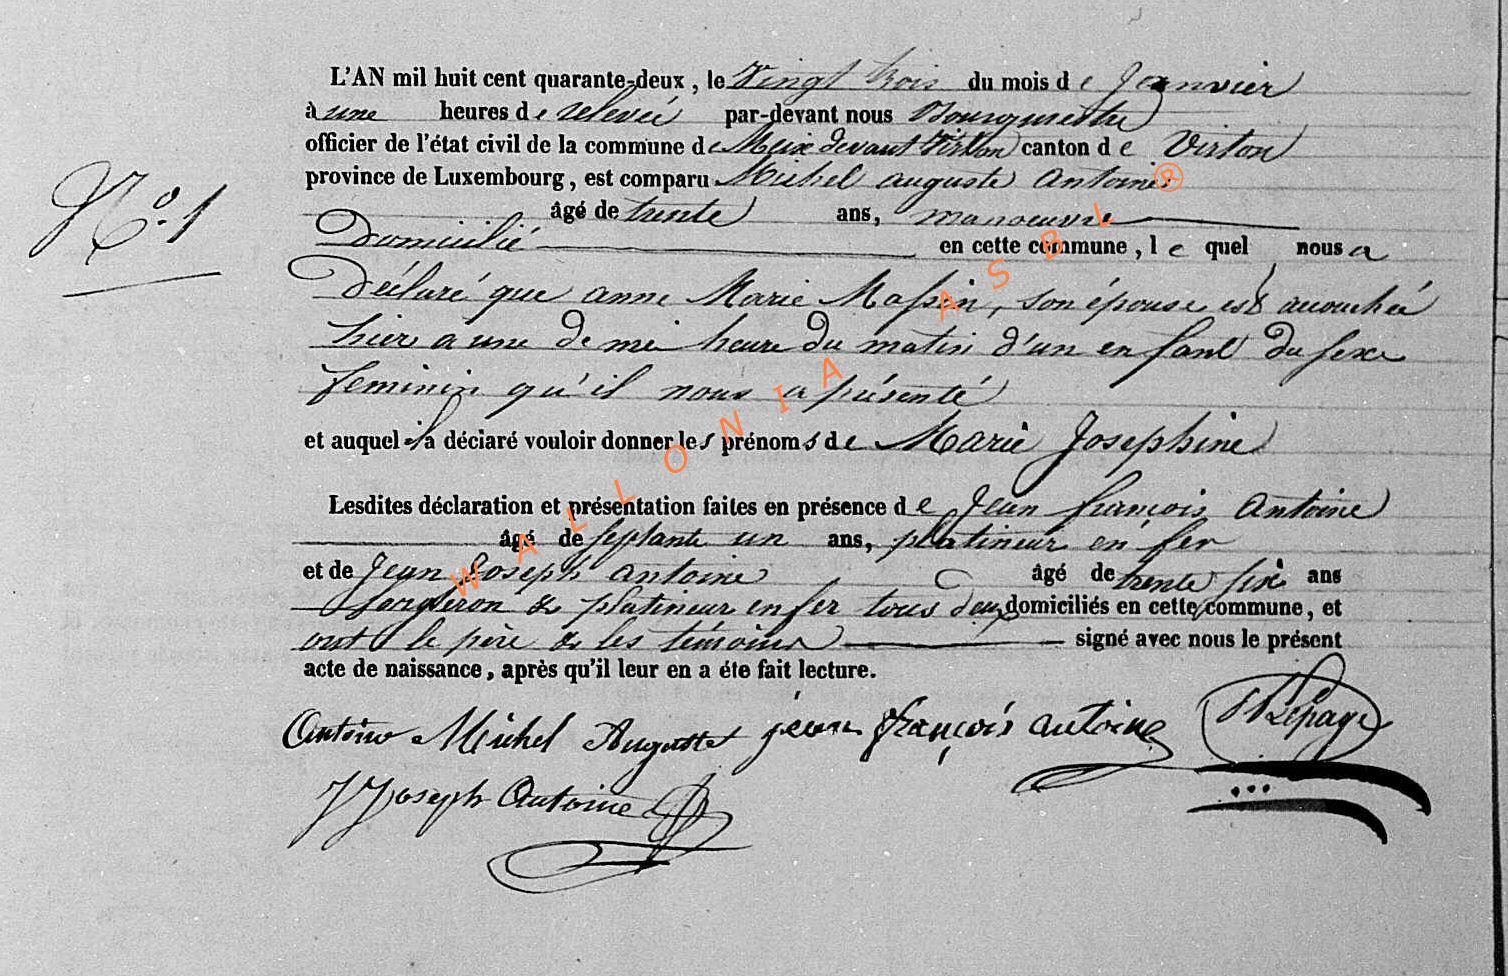 L'AN mil huit cent quarante-deux, le Vingt trois du mois de Janvier
à une heures de relevée par-devant nous Bourgmestre
officier de l'état civil de la commune de Meix devant Virton canton de Virton
province de Luxembourg, est comparu Michel auguste Antoine
N° 1
âgé de trente ans, manoeuvre
Domicilié en cette commune, lequel nous a
Déclaré que anne Marie Massin, son épouse est accouchée
hier a une demie heure du matin d'un enfant du sexe
feminin qu'il nous a présenté
et auquel il a déclaré vouloir donner les prénoms de Marie Josephine
Lesdites déclaration et présentation faites en présence de Jean françois Antoine
âgé de septante un ans, platineur en fer
et de Jean Joseph antoine âgé de trente six ans
forgeron & platineur en fer tous deux domiciliés en cette commune, et
ont le père & les témoins signé avec nous le présent
acte de naissance, après qu'il leur en a éte fait lecture.
Antoine Michel Auguste jean françois antoine Lepage
J Joseph Antoine
WALLONIA ASBL ®